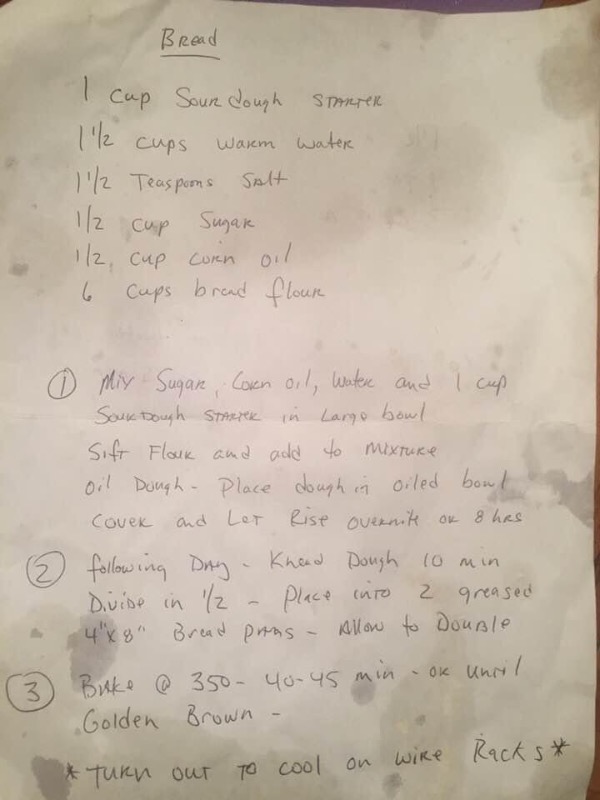 Bread
1 Cup Sour dough STARTER
1 1/2 cups warm water
1 1/2 Teaspoons Salt
1/2 cup Sugar
1/2 cup corn oil
6 cups bread flour
① Mix Sugar, Corn oil, Water and 1 cup
Sourdough STARTER in Large bowl
Sift Flour and add to mixture
Oil Dough - Place dough in oiled bowl
cover and Let Rise overnite or 8 hrs
② following Day - Knead Dough 10 min
Divide in 1/2 - Place into 2 greased
4"x8" Bread pans - Allow to Double
③ Bake @ 350 - 40-45 min - or until
Golden Brown -
*Turn out to cool on wire Racks*